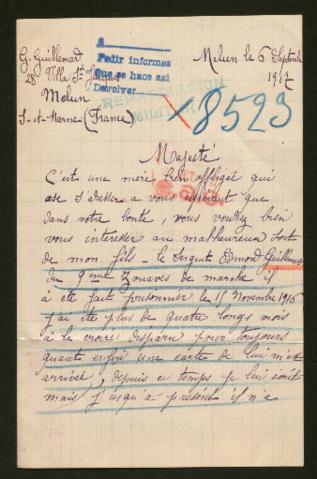 G. Guillemard
28 Villa St Jacques
Melun
S-et-Marne (France)
A
Pedir informes
Que se hace así
Devolver
REPATRIACION
MILITAR
Melun le 6 Septembre
1917
8523
Majesté
C'est une mère bien affligée qui
ose s'adresser a vous espérant que
dans votre bonté, vous voudrez bien
vous interesser au malheureux sort
de mon fils - le Sergent Edmond Guillemard
du 9me Zouaves de marche il
à été fait prisonnier le 15 Novembre 1916
j'ai été plus de quatre longs mois
à le croire disparu pour toujours
quant enfin une carte de lui m'est
arrivée, depuis ce temps je lui écrit
mais j'usqu'à présent il n'a